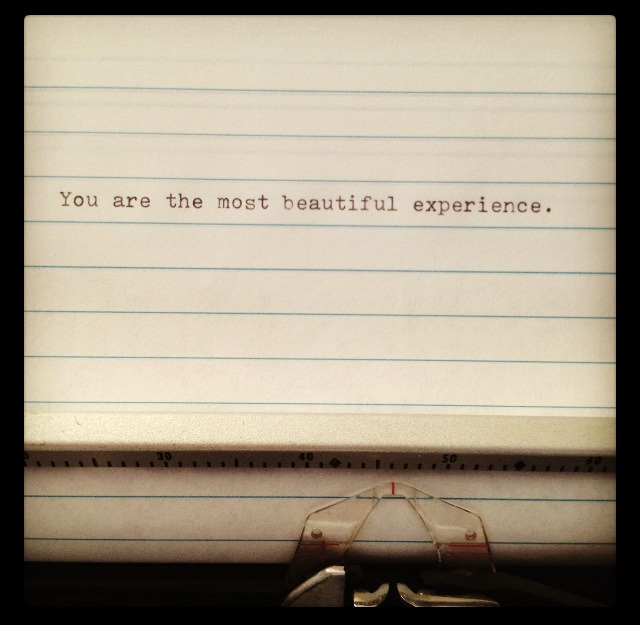 You are the most beautiful experience.
30 40 50 60